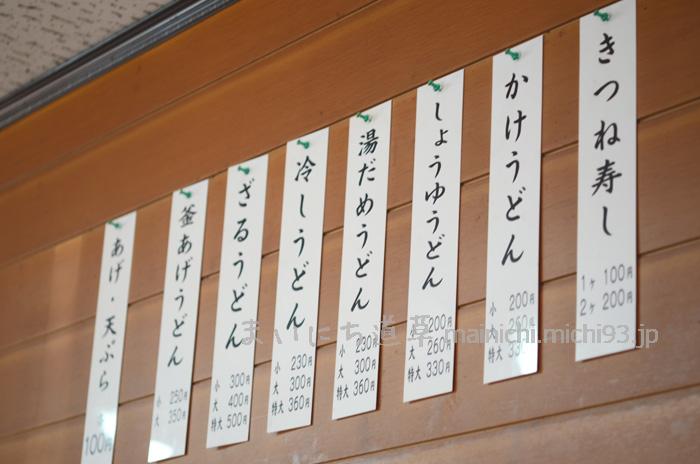 きつね寿し
1ヶ 100円
2ヶ 200円
かけうどん
小 200円
大 260円
特大 330円
しょうゆうどん
小 200円
大 260円
特大 330円
湯だめうどん
小 230円
大 300円
特大 360円
冷しうどん
小 230円
大 300円
特大 360円
ざるうどん
小 300円
大 400円
特大 500円
釜あげうどん
小 250円
大 350円
あげ・天ぷら
100円
まいにち道草 mainichi.michi93.jp